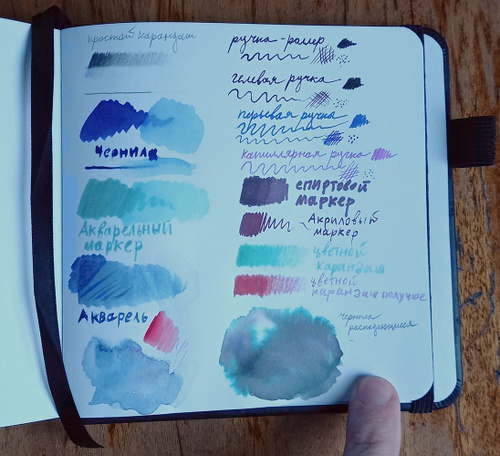 простой карандаш
Чернила
Акварельный
маркер
Акварель
ручка-роллер
гелевая ручка
перьевая ручка
капиллярная ручка
спиртовой
маркер
Акриловый
маркер
цветной
карандаш
цветной
карандаш получше
чернила
распадающиеся